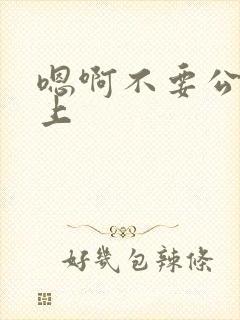 嗯啊不要公
上
好幾包辣條